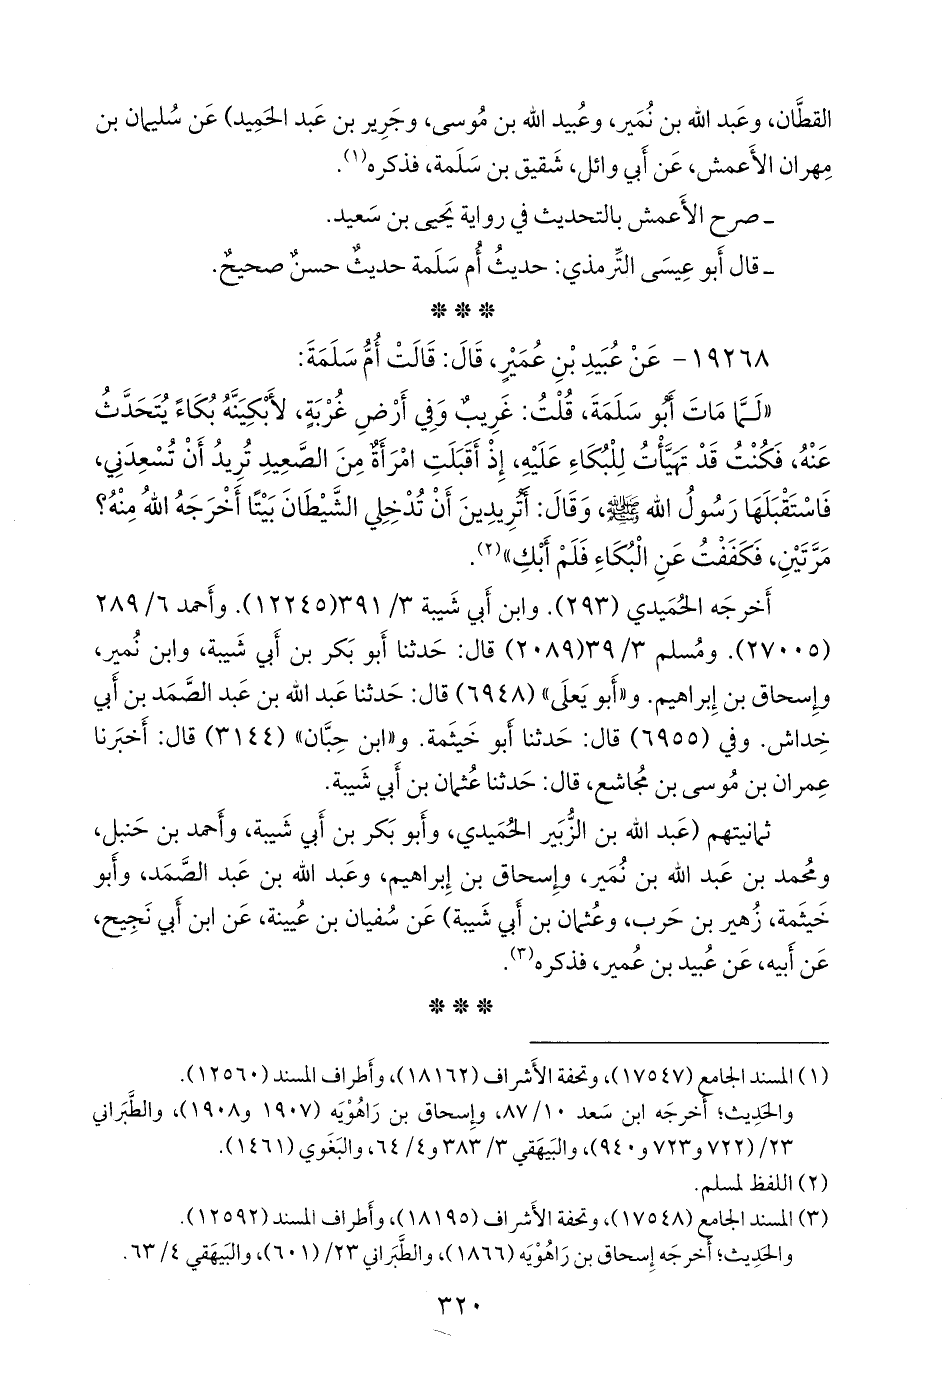 القطَّان، وعَبد الله بن نُمَير، وعُبيد الله بن مُوسى، وجَرير بن عَبد الحَمِيد) عَن سُليمان بن
مِهران الأَعمش، عَن أَبي وائل، شَقيق بن سَلَمة، فذكره(١).
ـ صرح الأَعمش بالتحديث في رواية يَحيى بن سَعيد.
ـ قال أَبو عِيسَى التِّرمذي: حديثُ أُم سَلَمة حديثٌ حسنٌ صحيحٌ.
* * *
١٩٢٦٨- عَنْ عُبَيدِ بْنِ عُمَيْرٍ، قَالَ: قَالَتْ أُمُّ سَلَمَةَ:
«لَـمَّا مَاتَ أَبُو سَلَمَةَ، قُلْتُ: غَرِيبٌ وَفِي أَرْضِ غُرْبَةٍ، لأَبْكِيَنَّهُ بُكَاءً يُتَحَدَّثُ
عَنْهُ، فَكُنْتُ قَدْ تَهَيَّأْتُ لِلْبُكَاءِ عَلَيْهِ، إِذْ أَقْبَلَتِ امْرَأَةٌ مِنَ الصَّعِيدِ تُرِيدُ أَنْ تُسْعِدَنِي،
فَاسْتَقْبَلَهَا رَسُولُ اللهِ ﷺ، وَقَالَ: أَتُرِيدِينَ أَنْ تُدْخِلِي الشَّيْطَانَ بَيْتًا أَخْرَجَهُ اللهُ مِنْهُ؟
مَرَّتَيْنِ، فَكَفَفْتُ عَنِ الْبُكَاءِ فَلَمْ أَبْكِ»(٢).
أَخرجَه الحُمَيدي (٢٩٣). وابن أَبي شَيبة ٣/ ٣٩١(١٢٢٤٥). وأَحمد ٦/ ٢٨٩
(٢٧٠٠٥). ومُسلم ٣/ ٣٩(٢٠٨٩) قال: حَدثنا أَبو بَكر بن أَبي شَيبة، وابن نُمير،
وإِسحاق بن إِبراهيم. و«أَبو يَعلَى» (٦٩٤٨) قال: حَدثنا عَبد الله بن عَبد الصَّمَد بن أَبي
خِداش. وفي (٦٩٥٥) قال: حَدثنا أَبو خَيثمة. و«ابن حِبَّان» (٣١٤٤) قال: أَخبَرنا
عِمران بن مُوسى بن مُجاشع، قال: حَدثنا عُثمان بن أَبي شَيبة.
ثمانيتهم (عَبد الله بن الزُّبَير الحُمَيدي، وأَبو بَكر بن أَبي شَيبة، وأَحمد بن حَنبل،
ومُحمد بن عَبد الله بن نُمَير، وإِسحاق بن إِبراهيم، وعَبد الله بن عَبد الصَّمَد، وأَبو
خَيثَمة، زُهير بن حَرب، وعُثمان بن أَبي شَيبة) عَن سُفيان بن عُيينة، عَن ابن أَبي نَجِيح،
عَن أَبيه، عَن عُبيد بن عُمير، فذكره(٣).
* * *
(١) المسند الجامع (١٧٥٤٧)، وتحفة الأَشراف (١٨١٦٢)، وأَطراف المسند (١٢٥٦٠).
والحَدِيث؛ أَخرجَه ابن سَعد ١٠/ ٨٧، وإِسحاق بن رَاهُوْيَه (١٩٠٧ و١٩٠٨)، والطَّبَراني
٢٣/ (٧٢٢ و٧٢٣ و٩٤٠)، والبَيهَقي ٣/ ٣٨٣ و٤/ ٦٤، والبَغَوي (١٤٦١).
(٢) اللفظ لمسلم.
(٣) المسند الجامع (١٧٥٤٨)، وتحفة الأَشراف (١٨١٩٥)، وأَطراف المسند (١٢٥٩٢).
والحَدِيث؛ أَخرجَه إِسحاق بن رَاهُوْيَه (١٨٦٦)، والطَّبَراني ٢٣/ (٦٠١)، والبَيهَقي ٤/ ٦٣.
٣٢٠